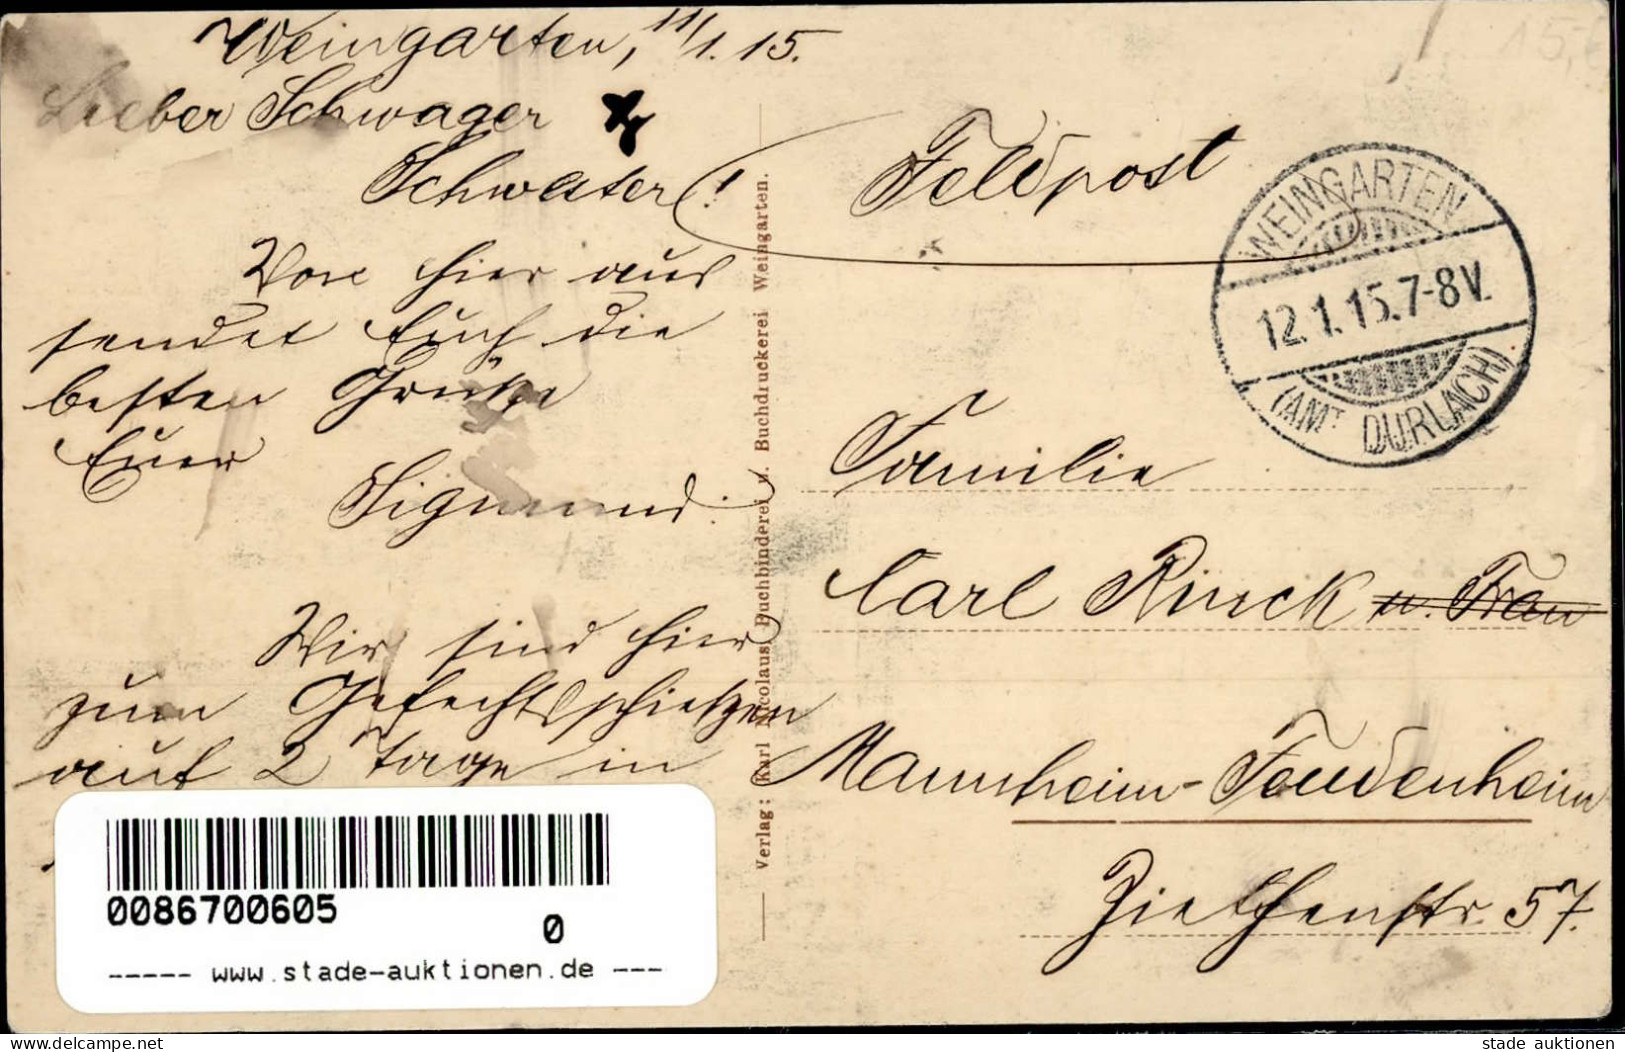 Weingarten, 11/1. 15.
Lieber Schwager u
Schwester!
Von hier aus
sendet Euch die
besten Grüße
Euer
Sigmund.
Wir sind hier
zum Gefechtsschießen
auf 2 Tage in
Feldpost
WEINGARTEN
12.1.15.7-8V.
(AMT DURLACH)
Familie
Carl Rinck u. Frau
Mannheim-Feudenheim
Ziethenstr. 57.
Verlag: Karl Nicolaus, Buchbinderei u. Buchdruckerei Weingarten.
15,
0086700605
0
----- www.stade-auktionen.de ---
delcampe.net
stade auktionen